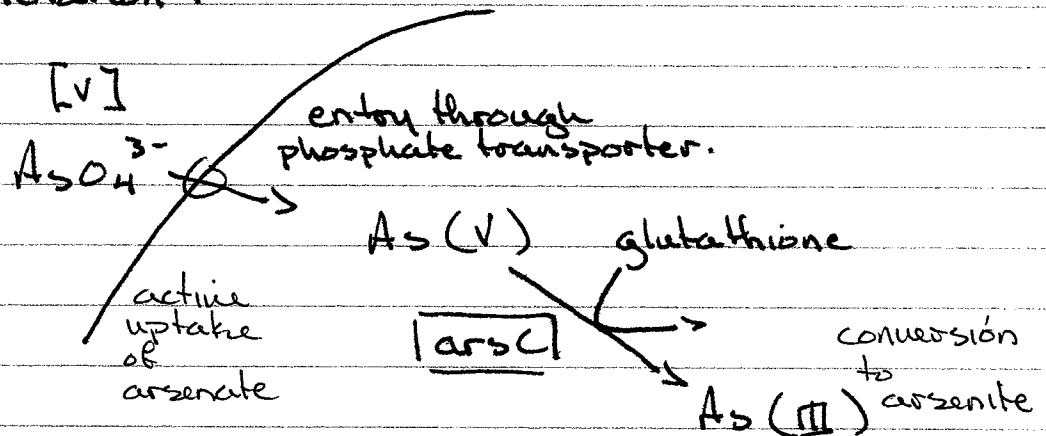 [V]
AsO₄³⁻
entry through
phosphate transporter.
As (V)
glutathione
active
uptake
of
arsenate
arsC
conversión
to
arsenite
As (III)